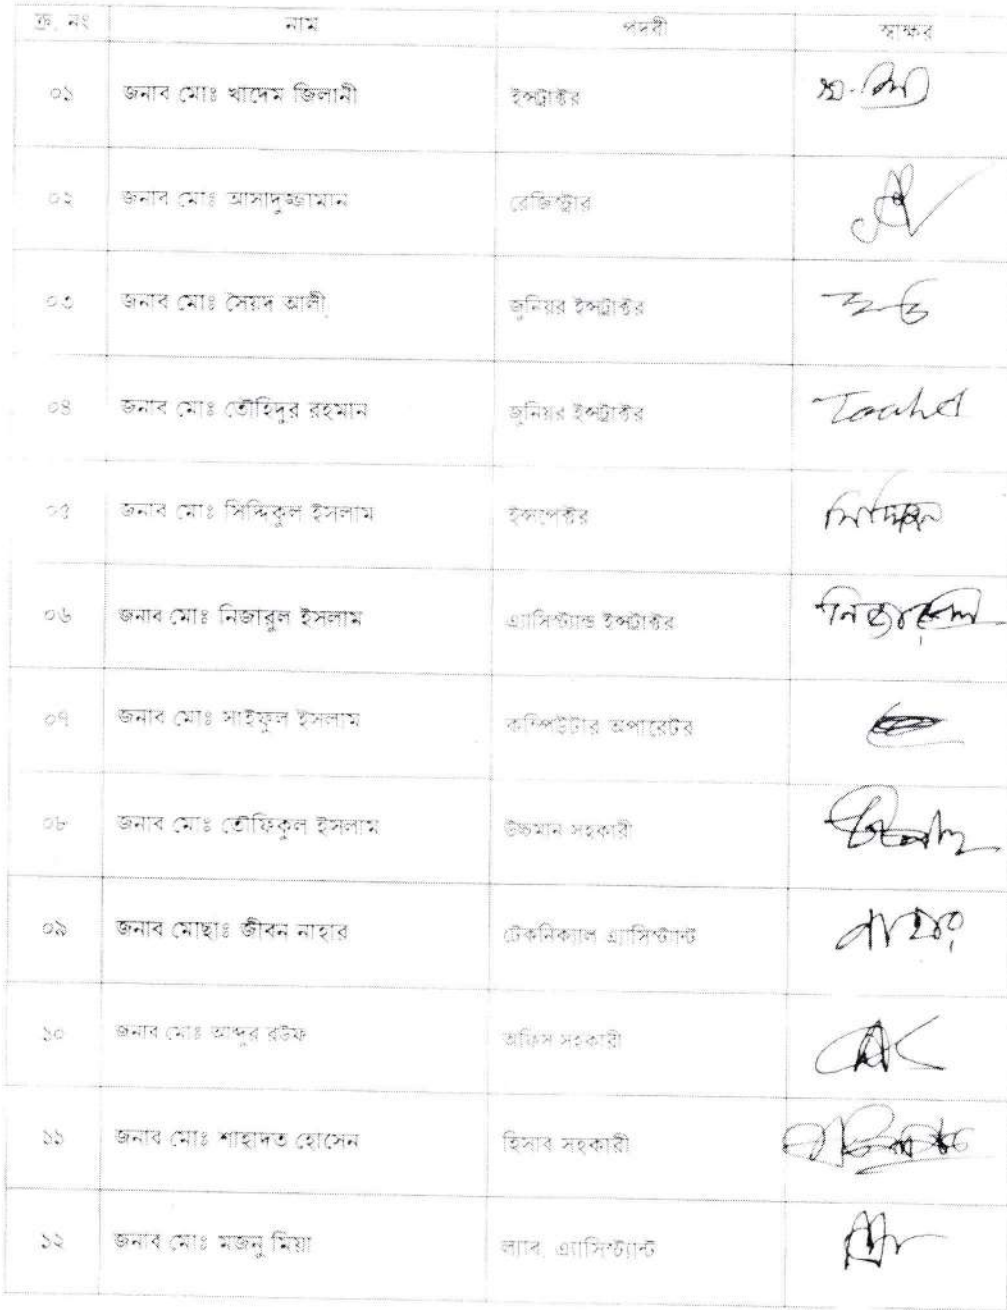 ক্র. নং নাম পদবী স্বাক্ষর
০১ জনাব মোঃ খাদেম জিলানী ইন্সট্রাক্টর
০২ জনাব মোঃ আসাদুজ্জামান রেজিস্ট্রার
০৩ জনাব মোঃ সৈয়দ আলী জুনিয়র ইন্সট্রাক্টর
০৪ জনাব মোঃ তৌহিদুর রহমান জুনিয়র ইন্সট্রাক্টর
০৫ জনাব মোঃ সিদ্দিকুল ইসলাম ইন্সপেক্টর
০৬ জনাব মোঃ নিজারুল ইসলাম এ্যাসিস্ট্যান্ড ইন্সট্রাক্টর
০৭ জনাব মোঃ সাইফুল ইসলাম কম্পিউটার অপারেটর
০৮ জনাব মোঃ তৌফিকুল ইসলাম উচ্চমান সহকারী
০৯ জনাব মোছাঃ জীবন নাহার টেকনিক্যাল এ্যাসিস্ট্যান্ট নাহার
১০ জনাব মোঃ আব্দুর রউফ অফিস সহকারী
১১ জনাব মোঃ শাহাদত হোসেন হিসাব সহকারী
১২ জনাব মোঃ মজনু মিয়া ল্যাব. এ্যাসিস্ট্যান্ট